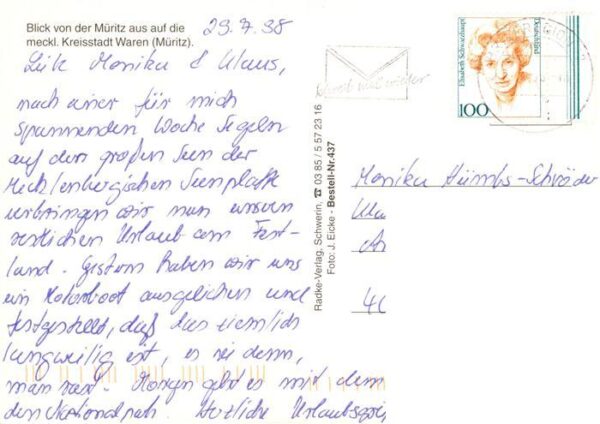 Blick von der Müritz aus auf die
meckl. Kreisstadt Waren (Müritz).
29.7.98
Monika & Klaus,
nach einer für mich
spannenden Woche Segeln
auf den großen Seen der
Mecklenbergischen Seenplatte
verbringen wir nun unseren
restlichen Urlaub am Fest-
land. Gestern haben wir uns
ein Motorboot ausgeliehen und
festgestellt, daß das ziemlich
langweilig ist, es sei denn,
man rast. Morgen geht es mit dem
den Nationalpark. Herzliche
Radke-Verlag, Schwerin, ☎ 03 85 / 5 57 23 16
Foto: J. Eicke - Bestell-Nr.437
Schreib mal wieder
Elisabeth Schwarzhaupt
Deutschland
100
Monika Hümbs-Schröder